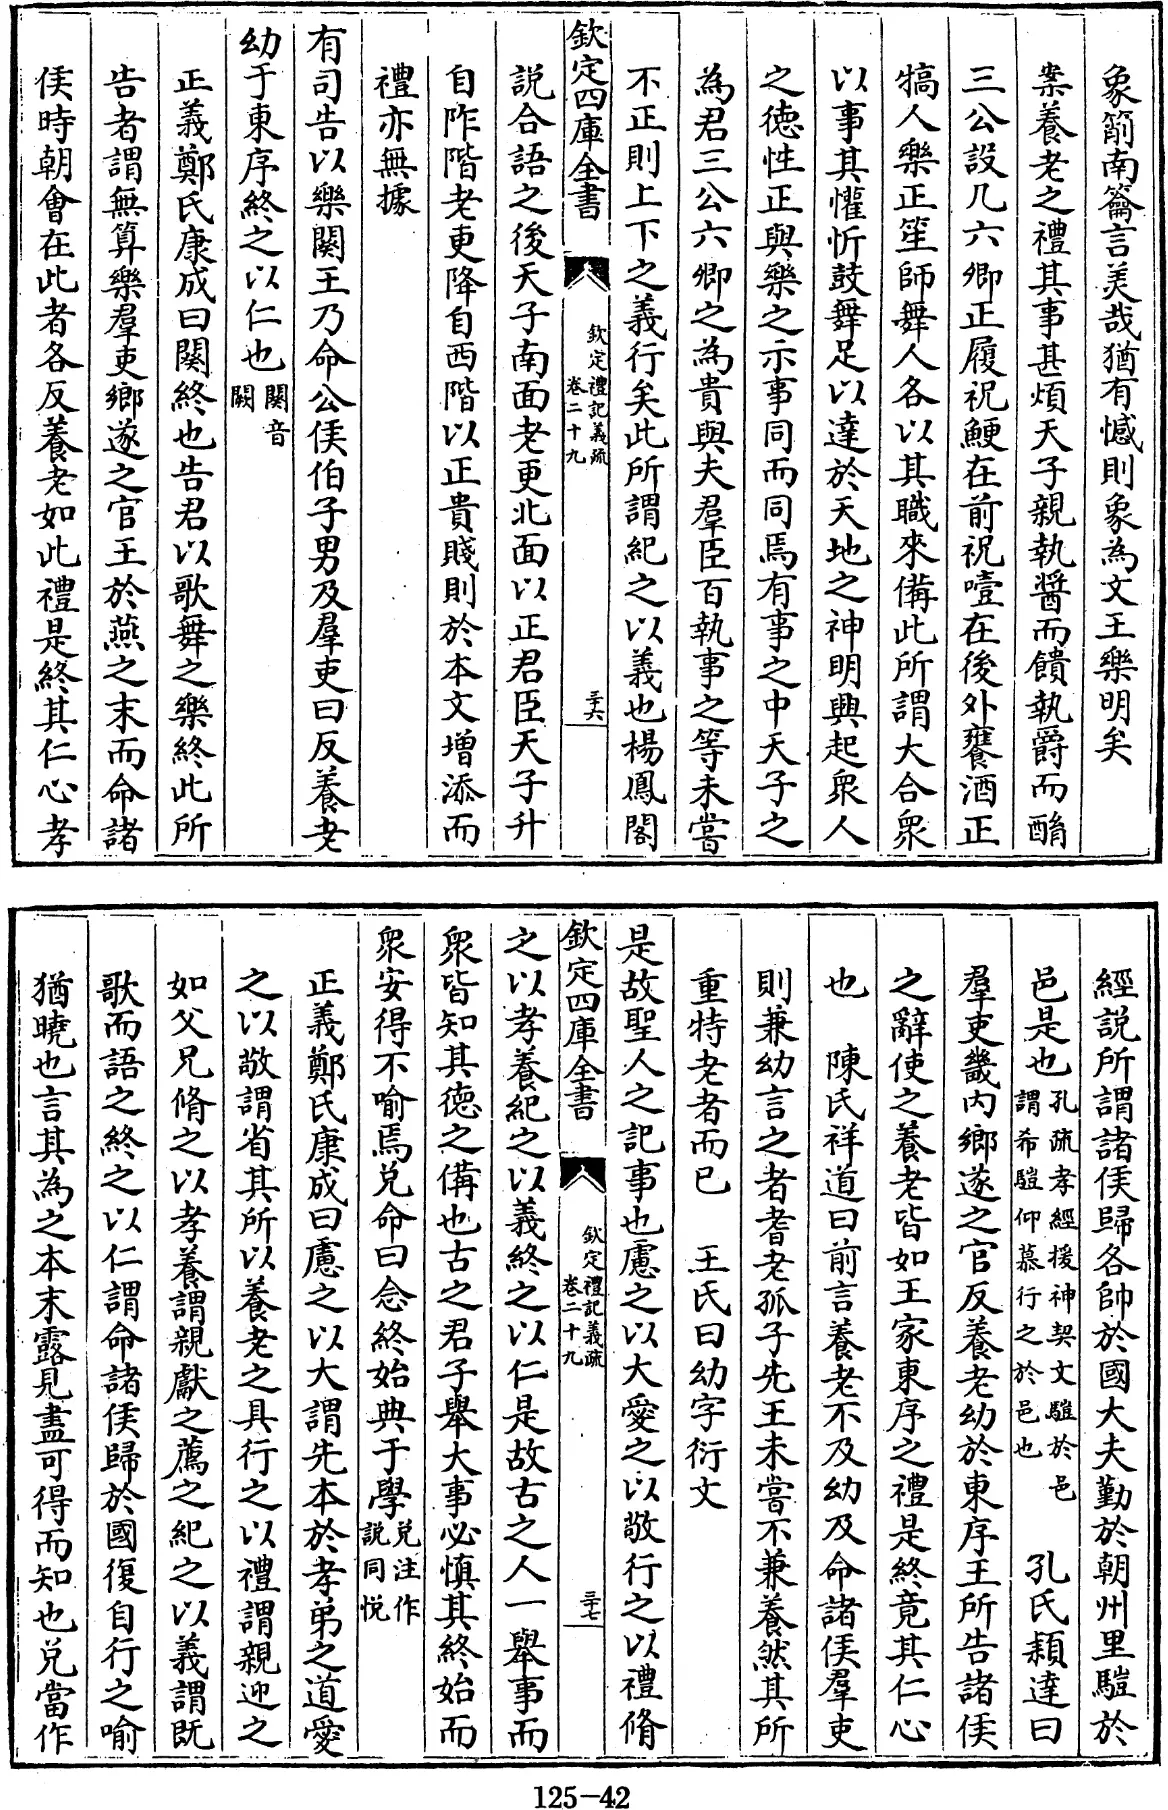 象箾南籥言美哉猶有憾則象為文王樂明矣
案養老之禮其事甚煩天子親執醬而饋執爵而酳
三公設几六卿正履祝鯁在前祝噎在後外饔酒正
犒人樂正笙師舞人各以其職來備此所謂大合衆
以事其懽忻鼓舞足以達於天地之神明興起衆人
之德性正與樂之示事同而同焉有事之中天子之
為君三公六卿之為貴與夫羣臣百執事之等未嘗
不正則上下之義行矣此所謂紀之以義也楊鳳閣
欽定四庫全書
欽定禮記義疏
卷二十九
三十六
說合語之後天子南面老更北面以正君臣天子升
自阼階老更降自西階以正貴賤則於本文增添而
禮亦無據
有司告以樂闋王乃命公侯伯子男及羣吏曰反養老
幼于東序終之以仁也闋音
闕
正義鄭氏康成曰闋終也告君以歌舞之樂終此所
告者謂無算樂羣吏鄉遂之官王於燕之末而命諸
侯時朝會在此者各反養老如此禮是終其仁心孝
經說所謂諸侯歸各帥於國大夫勤於朝州里䮗於
邑是也孔疏孝經援神契文䮗於邑
謂希䮗仰慕行之於邑也
孔氏穎達曰
羣吏畿內鄉遂之官反養老幼於東序王所告諸侯
之辭使之養老皆如王家東序之禮是終竟其仁心
也 陳氏祥道曰前言養老不及幼及命諸侯羣吏
則兼幼言之者耆老孤子先王未嘗不兼養然其所
重特老者而已 王氏曰幼字衍文
是故聖人之記事也慮之以大愛之以敬行之以禮脩
欽定四庫全書
欽定禮記義疏
卷二十九
三十七
之以孝養紀之以義終之以仁是故古之人一舉事而
衆皆知其德之備也古之君子舉大事必慎其終始而
衆安得不喻焉兌命曰念終始典于學兌注作
說同悅
正義鄭氏康成曰慮之以大謂先本於孝弟之道愛
之以敬謂省其所以養老之具行之以禮謂親迎之
如父兄脩之以孝養謂親獻之薦之紀之以義謂既
歌而語之終之以仁謂命諸侯歸於國復自行之喻
猶曉也言其為之本末露見盡可得而知也兌當作
125-42